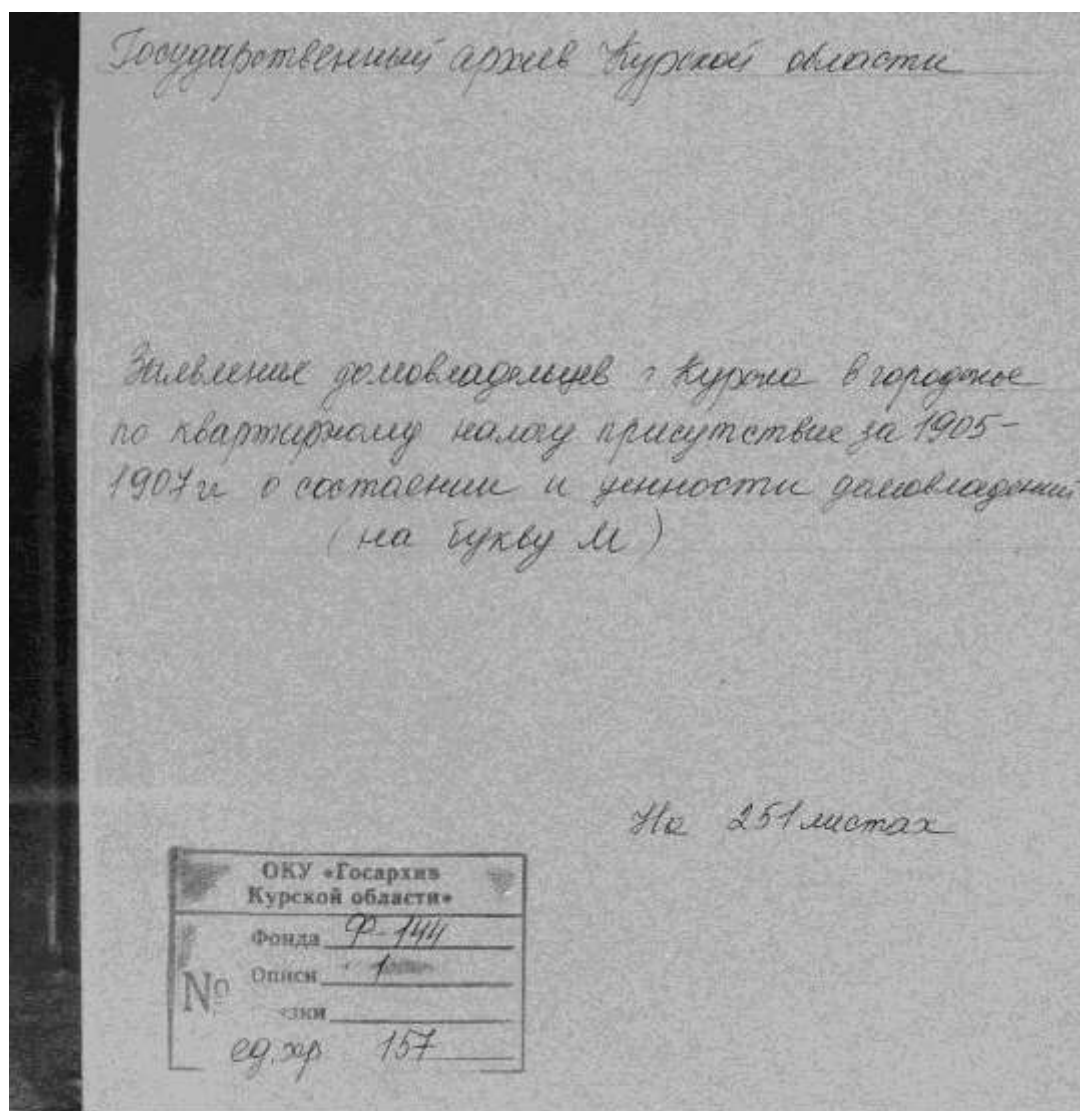 Государственный архив Курской области
Заявление домовладельцев г Курска в городское
по квартирному налогу присутствие за 1905-
1907 гг о состоянии и ценности домовладений
(на букву М)
На 251 листах
ОКУ «Госархив
Курской области»
Фонда Ф-144
Описи 1
№
ед. хр 157